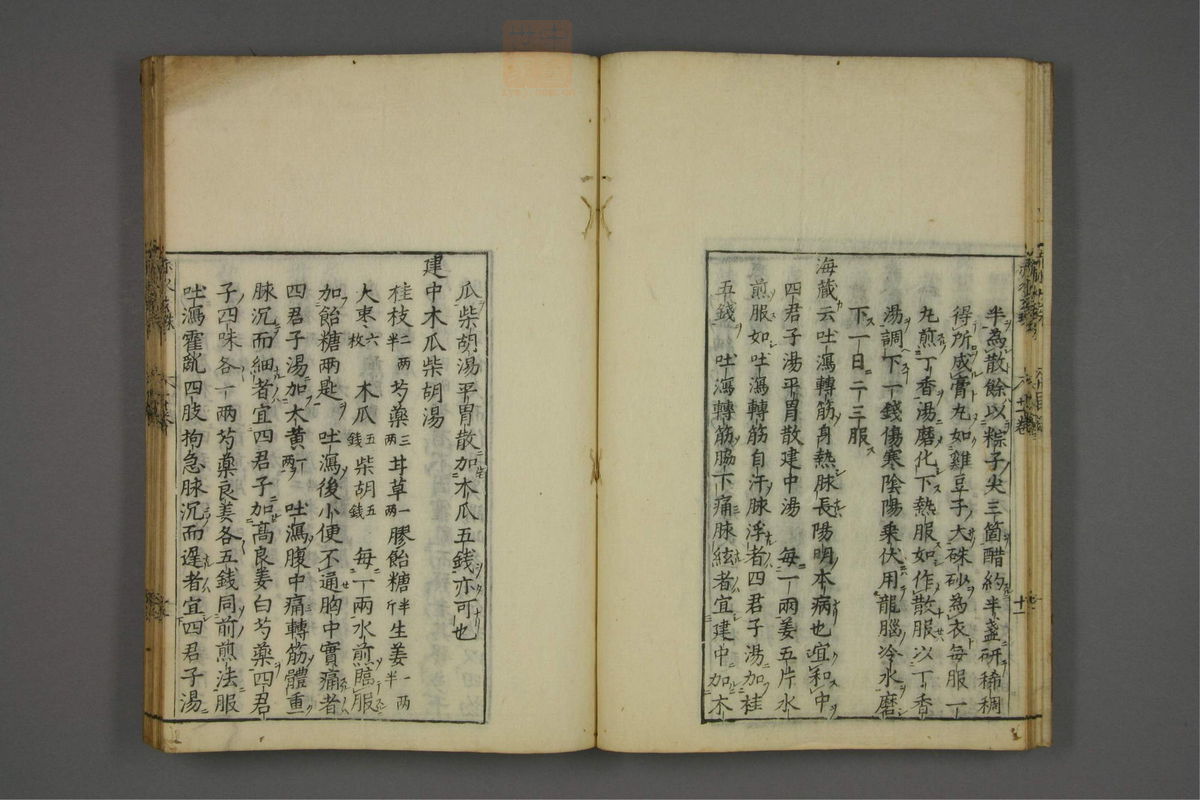 半為散餘以粽子尖三箇醋約半盞研稀稠
得所成膏丸如雞豆子大硃砂為衣每服一
丸煎丁香湯磨化下熱服如作散服以丁香
湯調下一錢傷寒陰陽乗伏用龍腦冷水磨
下一日二三服
海蔵云吐瀉轉筋身熱脉長陽明本病也宜和中
四君子湯平胃散建中湯 每一兩姜五片水
煎服如吐瀉轉筋自汗脉浮者四君子湯加桂
五錢 吐瀉轉筋脇下痛脉絃者宜建中加木
瓜柴胡湯平胃散加木瓜五錢亦可也
建中木瓜柴胡湯
桂枝二兩半 芍藥三兩 甘草一兩 膠飴糖半斤 生姜一兩半
大棗六枚 木瓜五錢 柴胡五錢 每一兩水煎臨服
加飴糖兩匙 吐瀉後小便不通胸中實痛者
四君子湯加大黄一兩 吐瀉腹中痛轉筋體重
脉沉而細者宜四君子加高良姜白芍藥四君
子四味各一兩芍藥良姜各五錢同前煎法服
吐瀉霍亂四肢拘急脉沉而遲者宜四君子湯